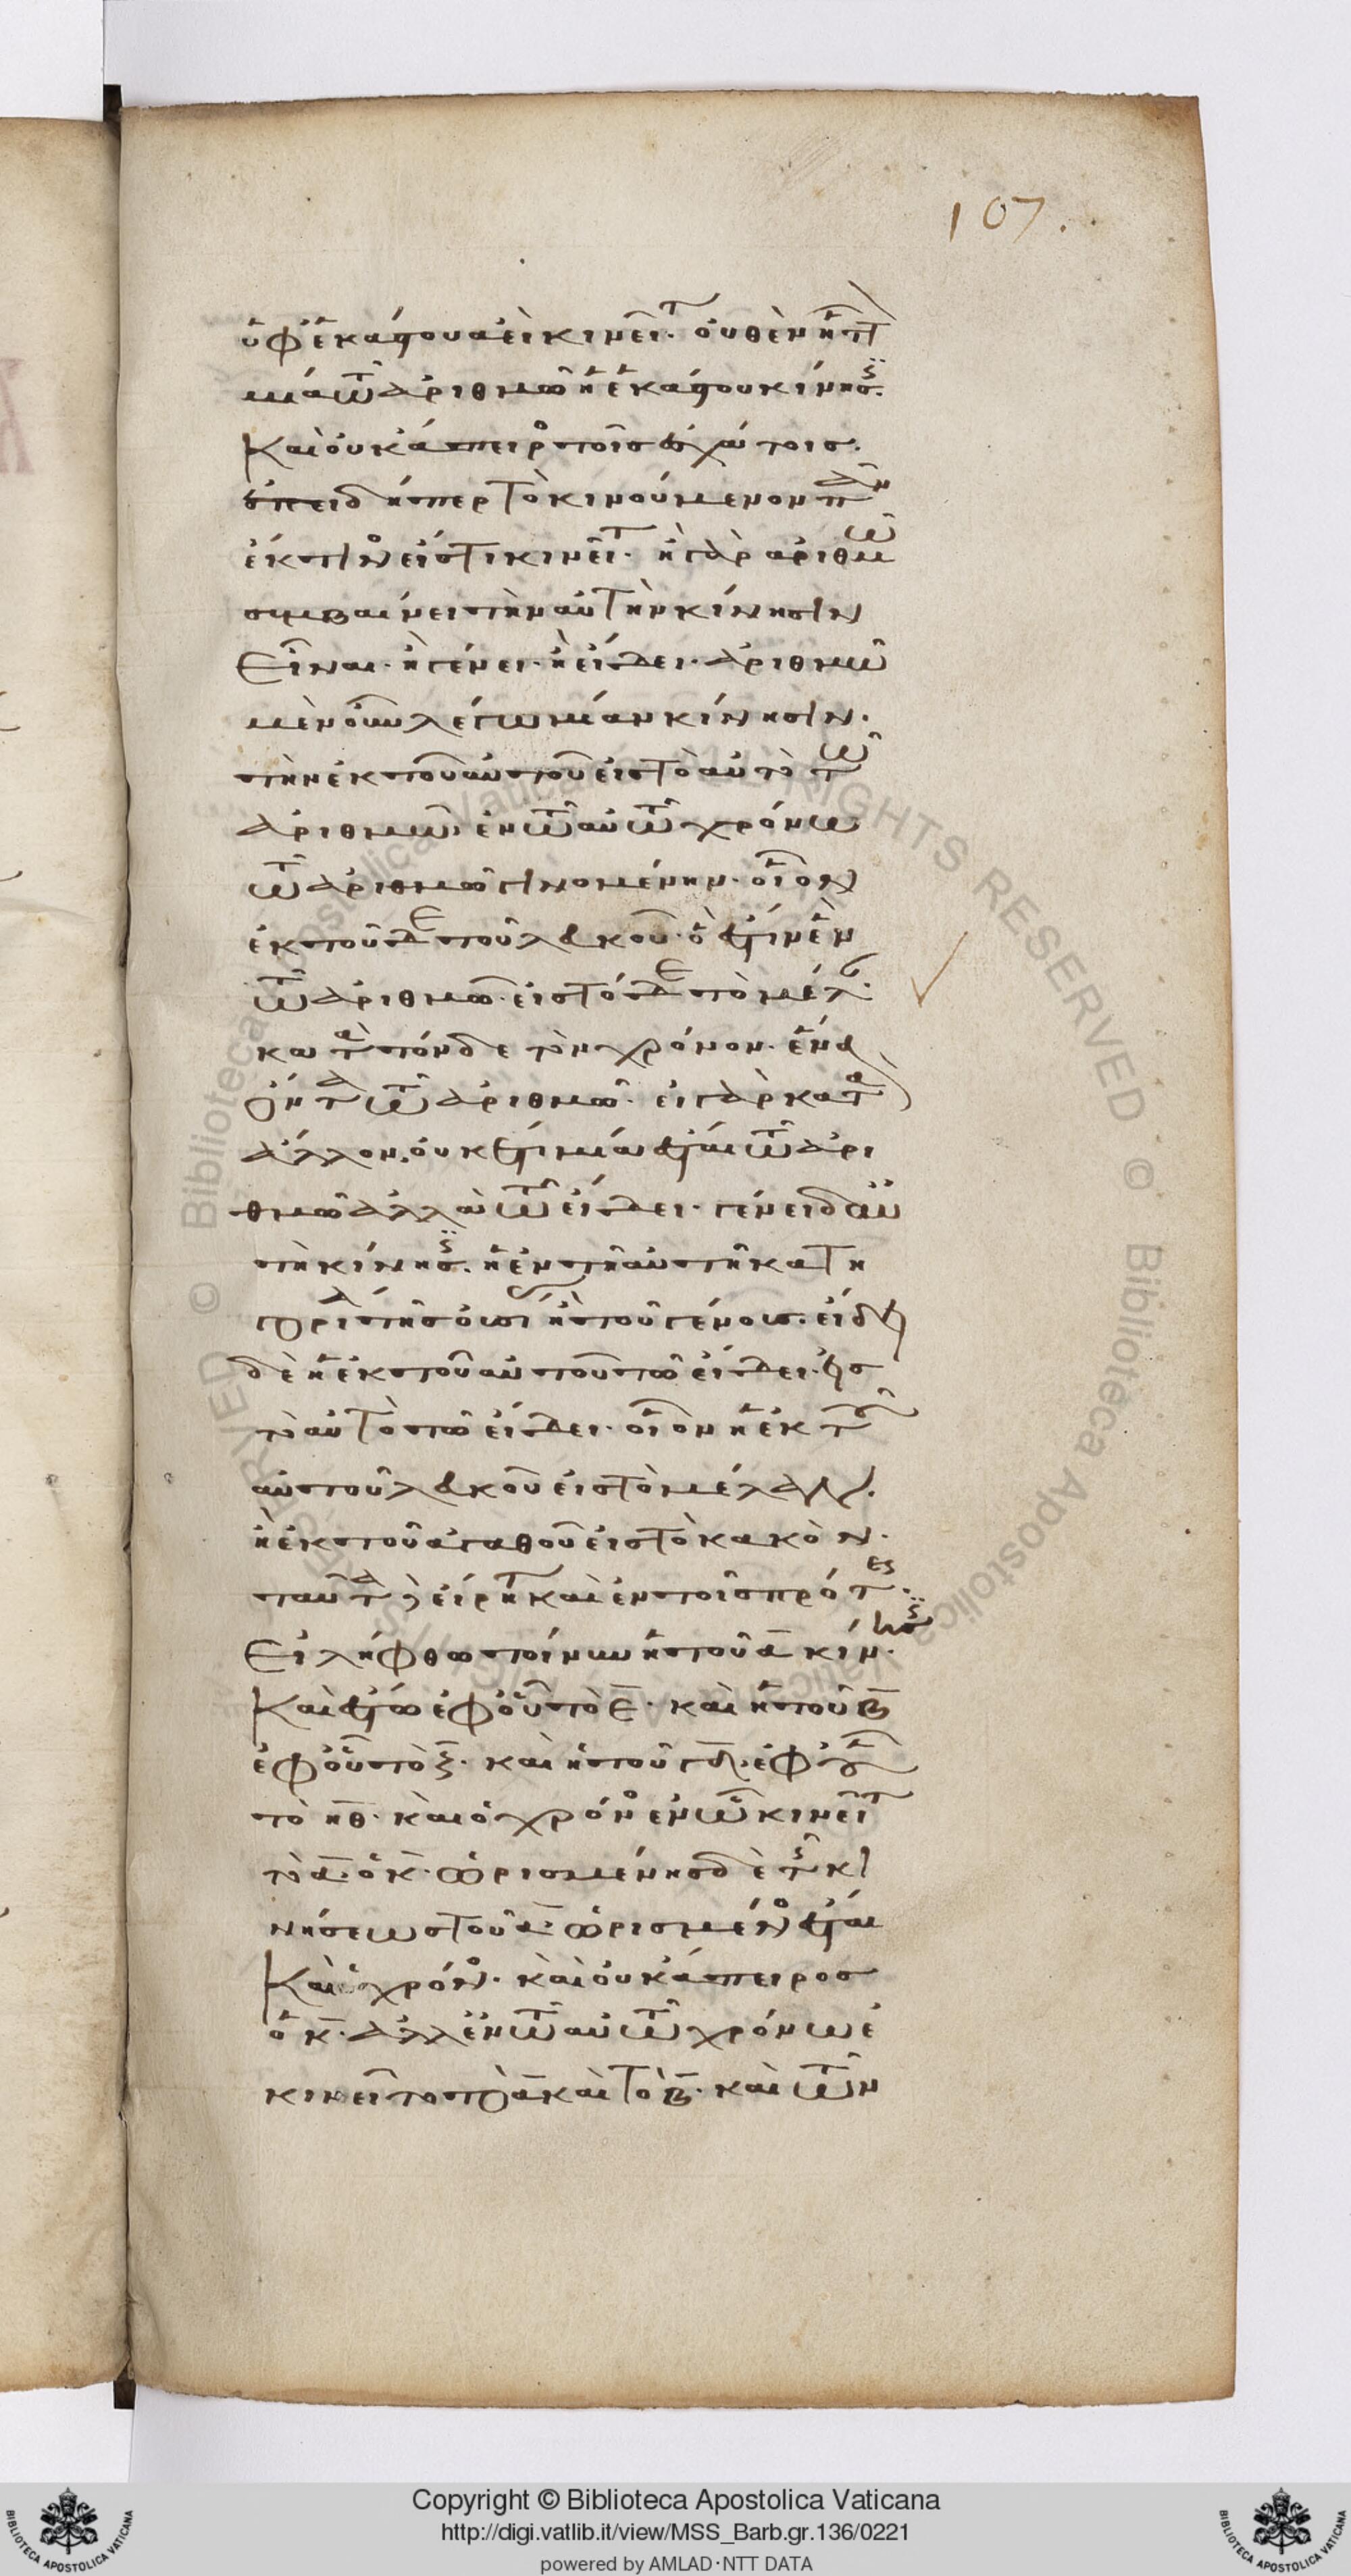 107.
ὑφ' ἑκάστου ἀεὶ κινεῖται. οὐθὲν ἧττ
μία τῶ ἀριθμῶ ἡ ἑκάστου κίνησις.
καὶ οὐκ ἄπειρος τοῖς ἐσχάτοις.
ἐπειδήπερ τὸ κινούμενον πᾶν
ἔκ τινος εἴς τι κινεῖται. ἢ γὰρ ἀριθμῶ
συμβαίνει τὴν αὐτὴν κίνησιν
εἶναι. ἢ γένει. ἢ εἴδει. ἀριθμῶ
μὲν οὖν λέγω μίαν κίνησιν.
τὴν ἐκ τοῦ αὐτοῦ εἰς τὸ αὐτὸ τῶ
ἀριθμῶ. ἐν τῶ αὐτῶ χρόνω
τῶ ἀριθμῶ γινομένην. οἷον
ἐκ τοῦδε τοῦ λευκοῦ. ὅ ἐστιν ἓν
τῶ ἀριθμῶ. εἰς τόδε τὸ μέλαν.
κατὰ τόνδε τὸν χρόνον. ἕνα
ὄντα τῶ ἀριθμῶ. εἰ γὰρ κατὰ
ἄλλον. οὐκέτι μία ἔσται τῶ ἀρι
θμῶ ἀλλὰ τῶ εἴδει. γένει δ' αὐ
τὴ κίνησις. ἡ ἐν τῆ αὐτῆ κατη
γορία τῆς οὐσίας ἢ τοῦ γένους. εἴδει
δὲ ἡ ἐκ τοῦ αὐτοῦ τῶ εἴδει. εἰς
τὸ αὐτὸ τῶ εἴδει. οἷον ἡ ἐκ τοῦ
αὐτοῦ λευκοῦ εἰς τὸ μέλαν.
ἢ ἐκ τοῦ ἀγαθοῦ εἰς τὸ κακόν.
ταῦτα δ' εἴρηται καὶ ἐν τοῖς πρότερον.
εἰλήφθω τοίνυν ἡ τοῦ α κίνησις.
καὶ ἔστω ἐφ' οὗ τὸ ε. καὶ ἡ τοῦ β
ἐφ' οὗ τὸ ζ. καὶ ἡ τοῦ γδ. ἐφ' οὗ
τὸ ηθ. καὶ ὁ χρόνος ἐν ὧ κινεῖται
τὸ α. ὁ κ. ὡρισμένης δὲ τῆς κι
νήσεως τοῦ α. ὡρισμένος ἔσται
καὶ ὁ χρόνος. καὶ οὐκ ἄπειρος
ὁ κ. ἀλλ' ἐν τῶ αὐτῶ χρόνω ἐ
κινεῖτο τὸ α καὶ τὸ β. καὶ τῶν
Copyright © Biblioteca Apostolica Vaticana
http://digi.vatlib.it/view/MSS_Barb.gr.136/0221
powered by AMLAD·NTT DATA